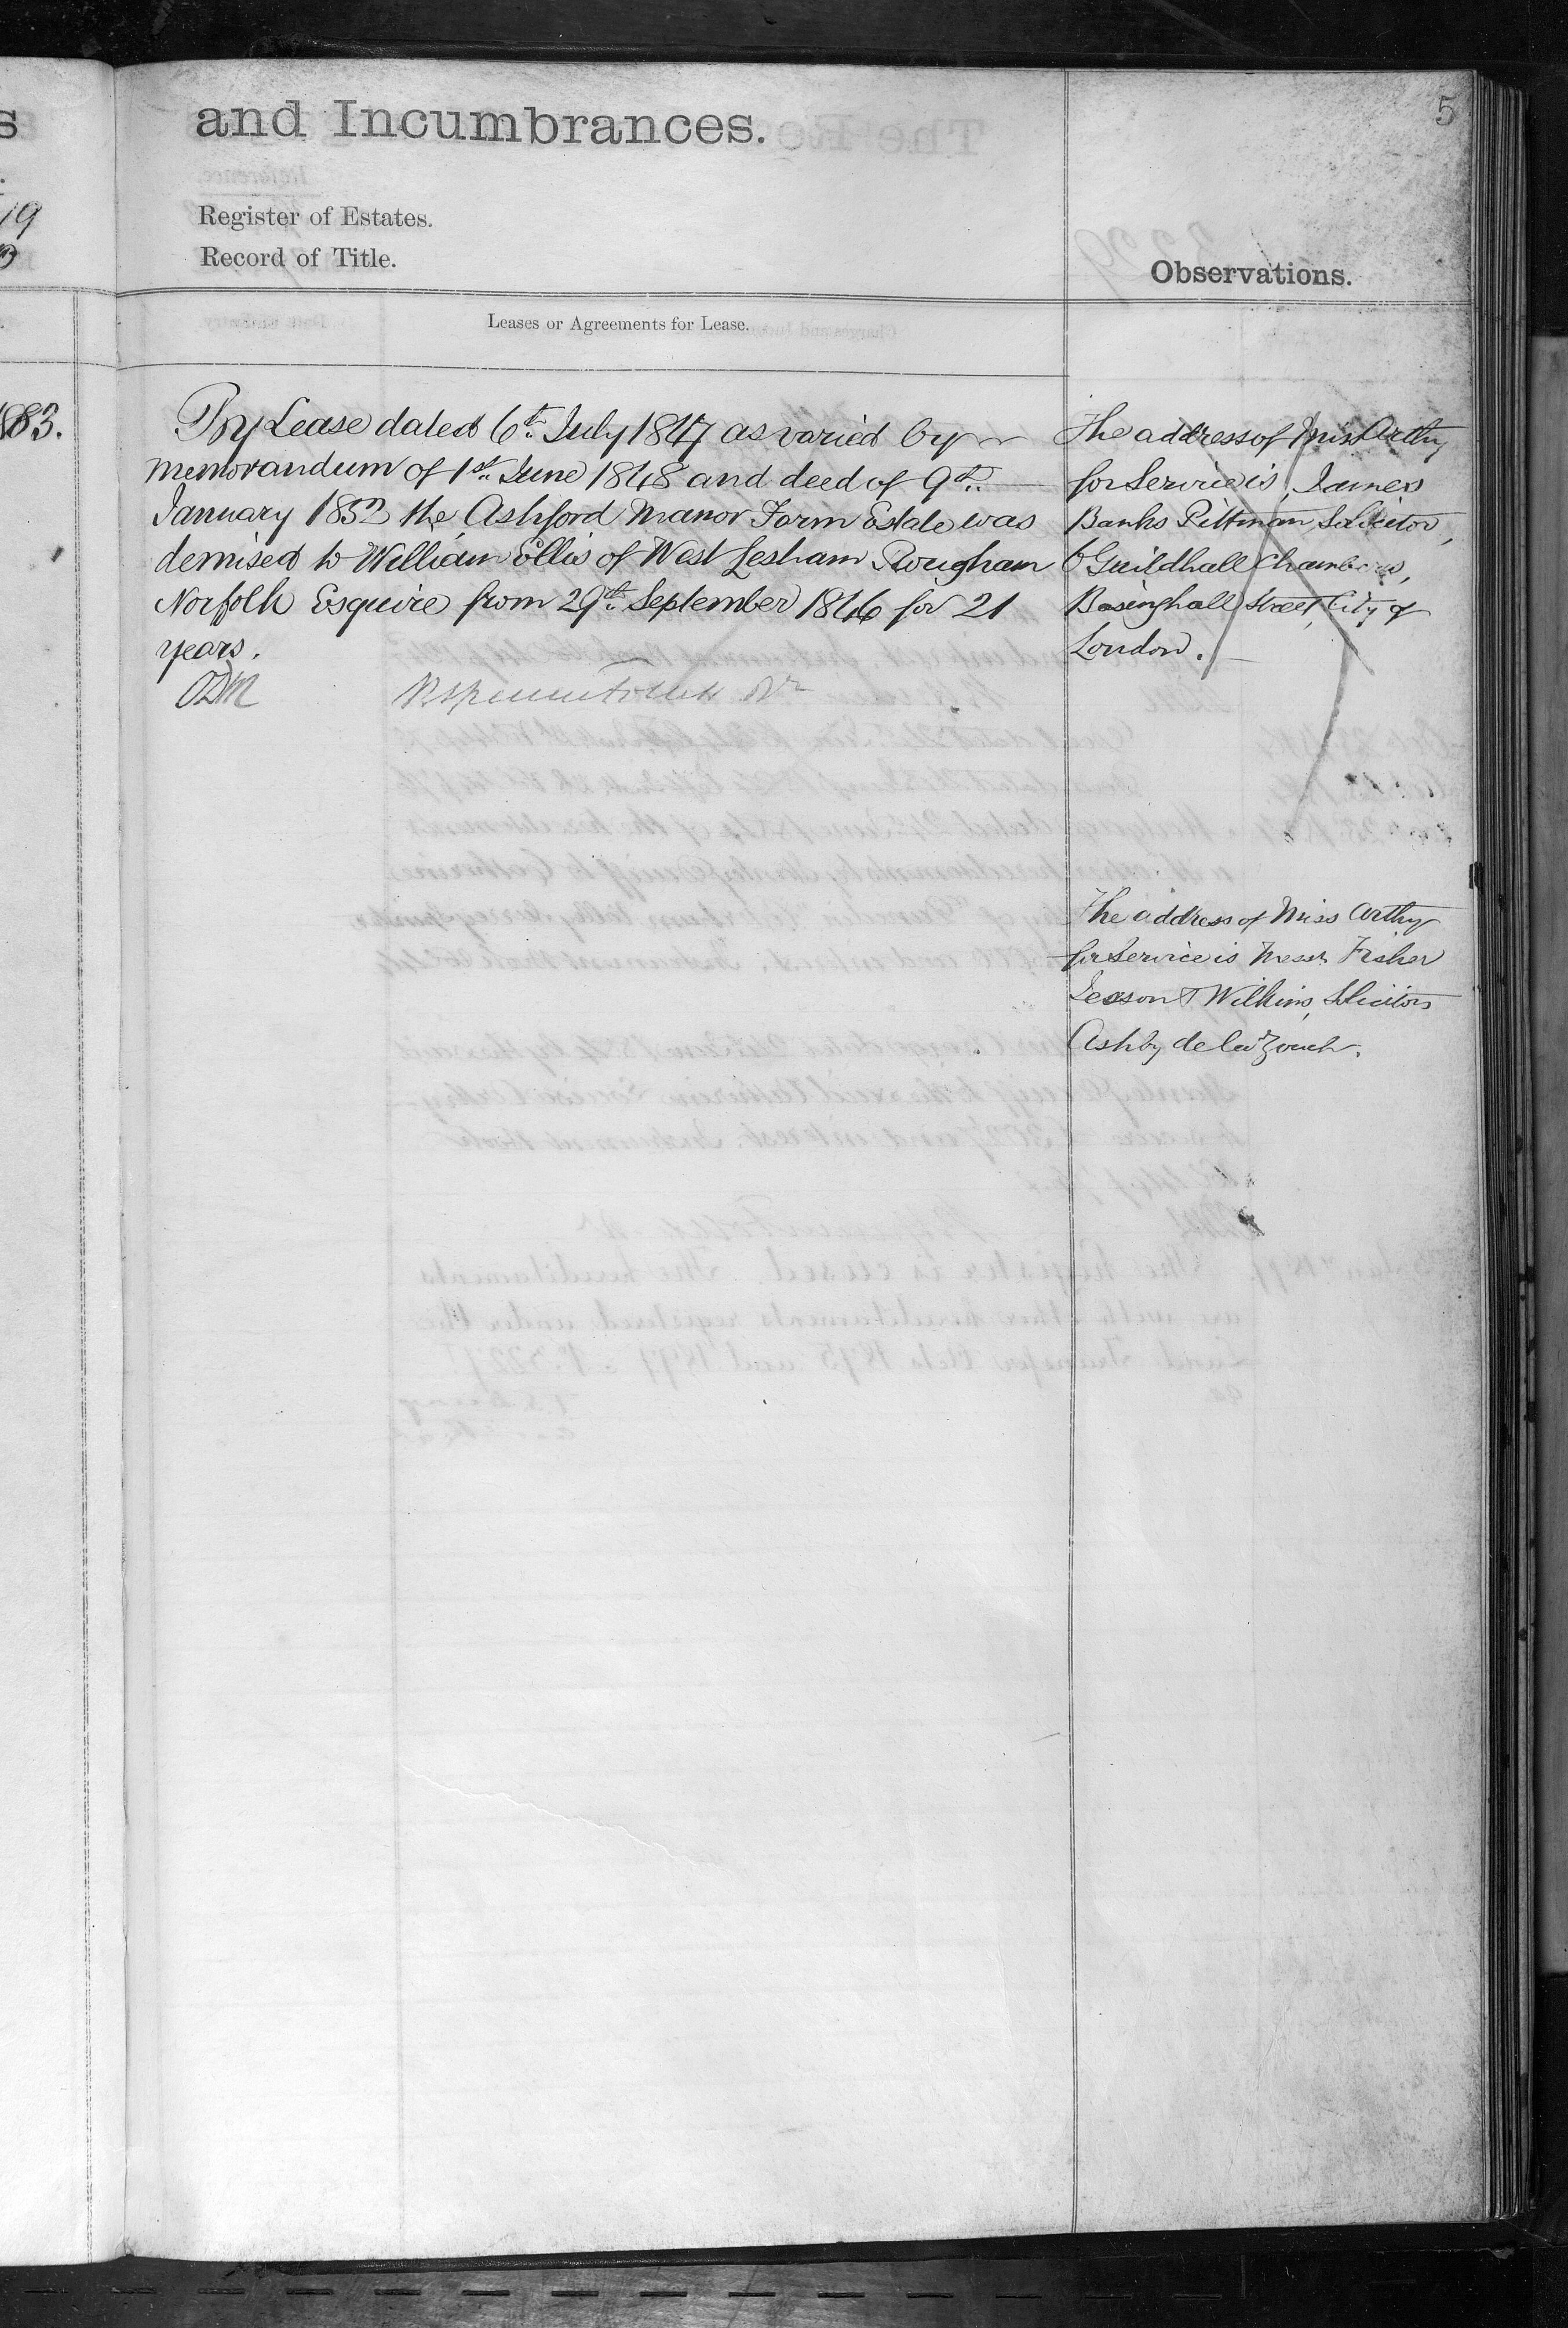 5
and Incumbrances.
Register of Estates.
Record of Title.
Observations.
Leases or Agreements for Lease.
19
1883.
By Lease dated 6th. July 1847 as varied by
memorandum of 1st. June 1848 and deed of 9th.
January 1852 the Ashford Manor Farm Estate was
demised to William Ellis of West Lesham Rougham
Norfolk Esquire from 29th. September 1846 for 21
years.
The address of Miss Arthy
for Service is, James
Banks Pittman, Solicitor,
6 Guildhall Chambers,
Basinghall Street, City of
London.
The address of Miss Arthy
for Service is Messrs Fisher
Jesson & Wilkins, Solicitors
Ashby de la Zouch.